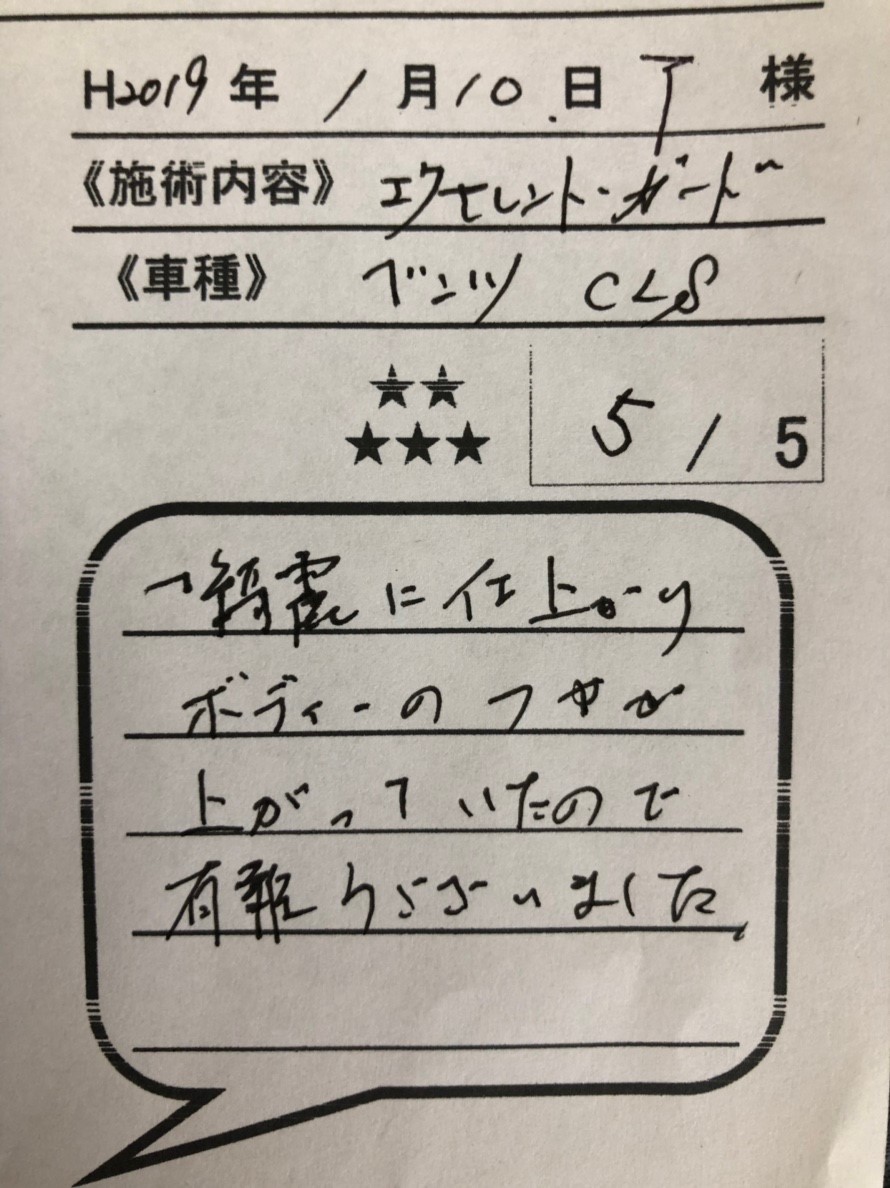 H2019年 1月10日 T 様
《施術内容》 エクセレント・ガード
《車種》 ベンツ CLS
★★
★★★ 5/5
綺麗に仕上がり
ボディーのツヤが
上がっていたので
有難うございました。